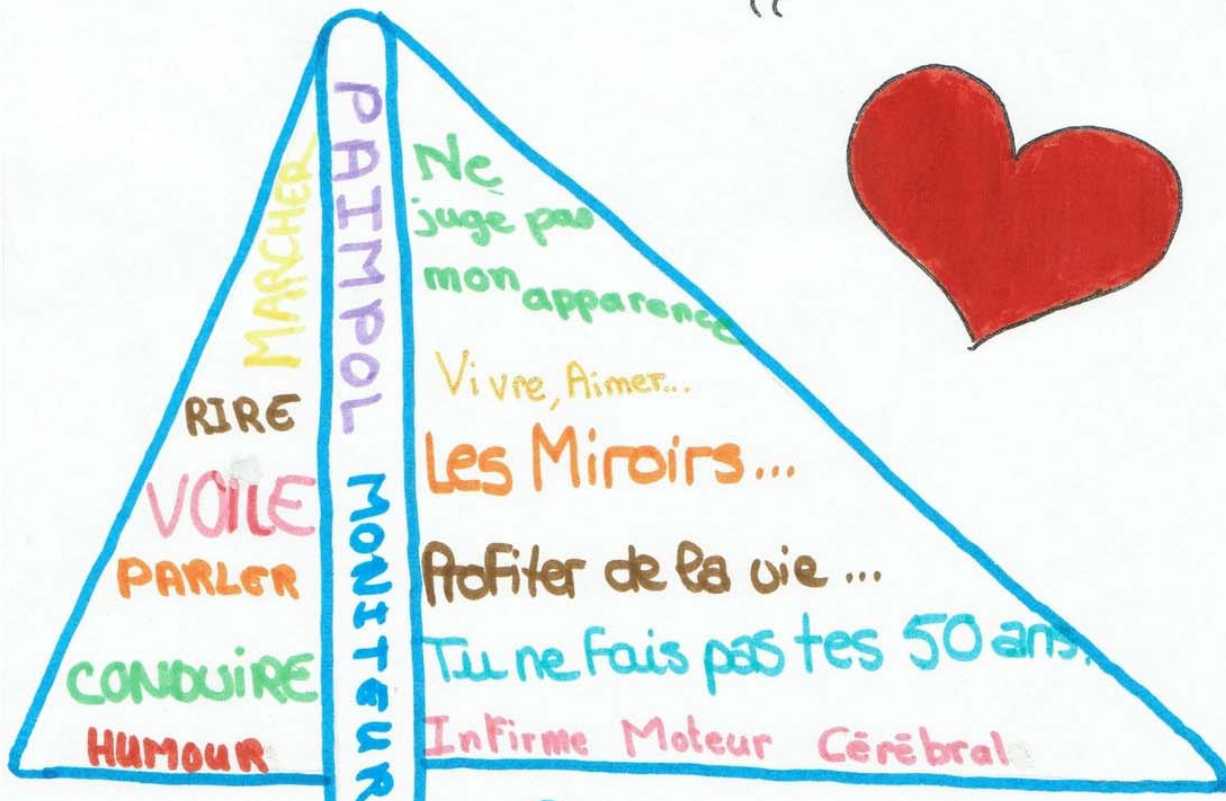 MARCHER
RIRE
VOILE
PARLER
CONDUIRE
HUMOUR
PAIMPOL MONITEUR
Ne
juge pas
mon apparence
Vivre, Aimer...
Les Miroirs...
Profiter de la vie...
Tu ne fais pas tes 50 ans.
Infirme Moteur Cérébral